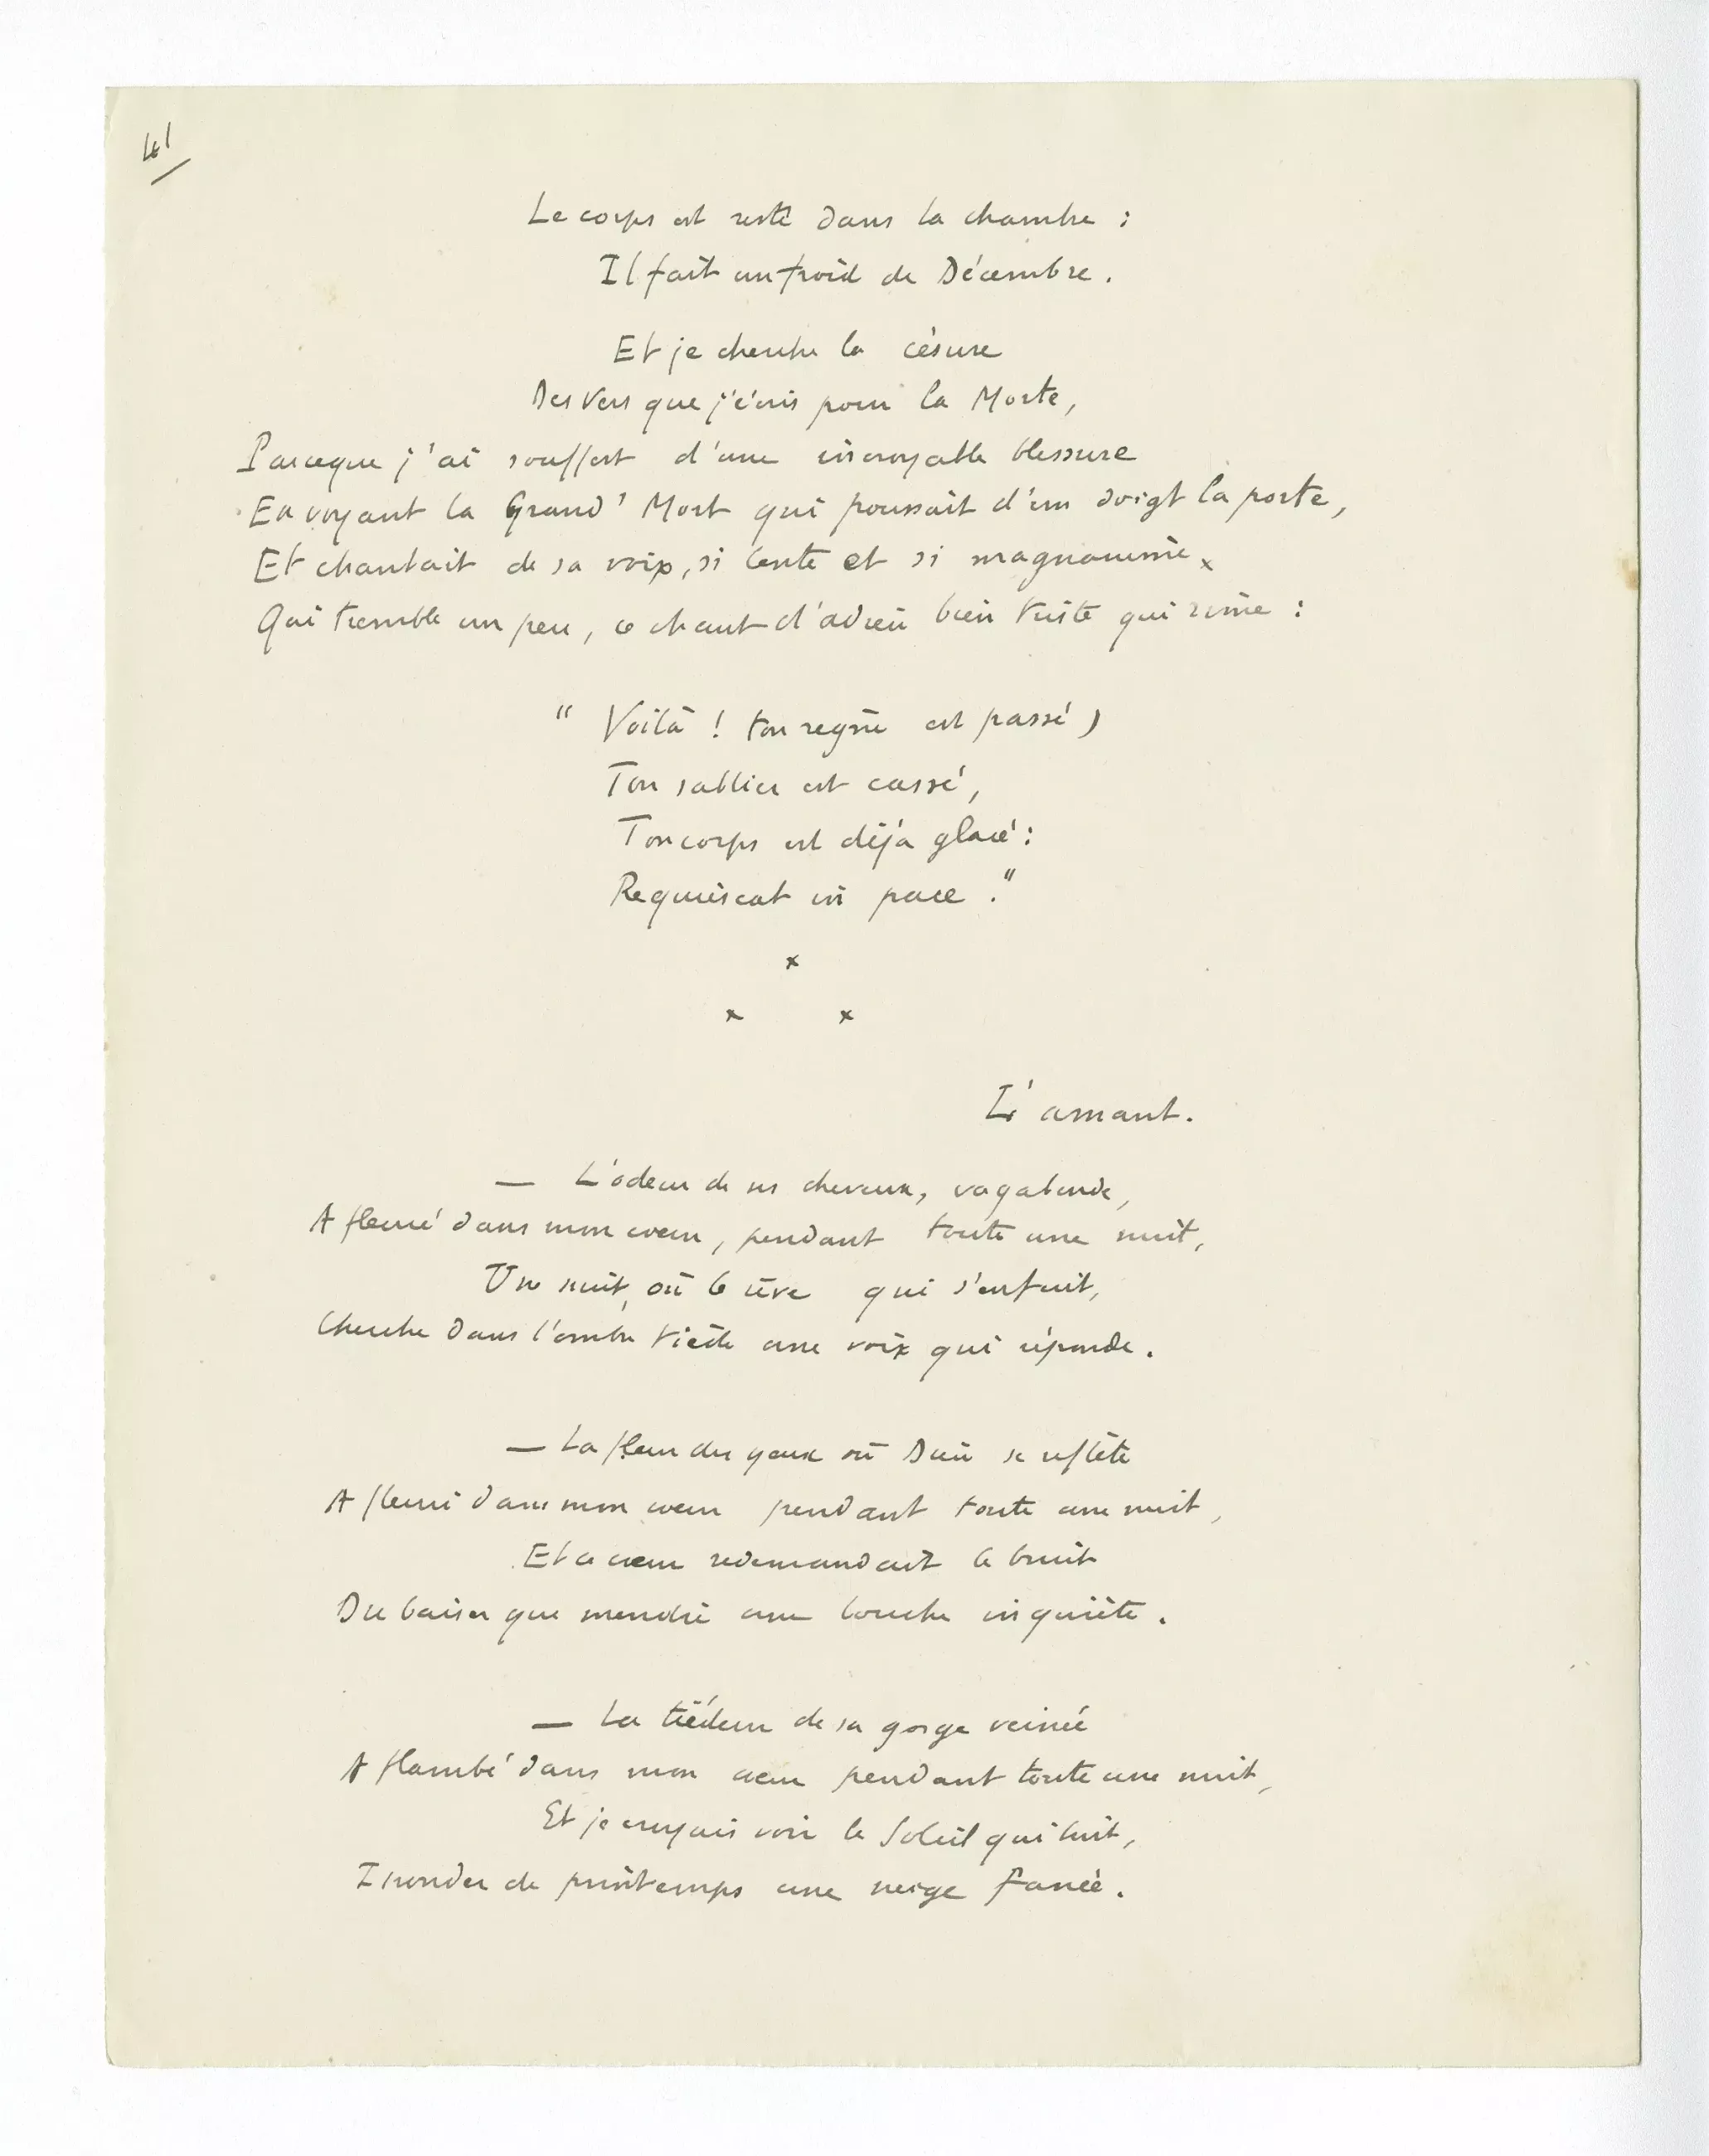 41
Le corps est resté dans la chambre :
Il fait un froid de Décembre.
Et je cherche la césure
Des Vers que j'écris pour la Morte,
Parceque j'ai souffert d'une incroyable blessure
En voyant la Grand' Mort qui poussait d'un doigt la porte,
Et chantait de sa voix, si lente et si magnanime
Qui tremble un peu, ce chant d'adieu bien triste qui rime :
" Voilà ! ton regne est passé,
Ton sablier est cassé,
Ton corps est déjà glacé :
Requiescat in pace ."
x
x x
L'amant.
— L'odeur de ses cheveux, vagabonde,
A fleuré dans mon coeur, pendant toute une nuit,
Une nuit, où le rêve qui s'enfuit,
Cherche dans l'ombre tiède une voix qui réponde.
— La fleur des yeux où Dieu se reflète
A fleuri dans mon coeur pendant toute une nuit,
Et ce coeur redemandait le bruit
Du baiser que mendie une bouche inquiète.
— La tiédeur de sa gorge veinée
A flambé dans mon coeur pendant toute une nuit,
Et je croyais voir le Soleil qui luit,
Inonder de printemps une neige fanée.